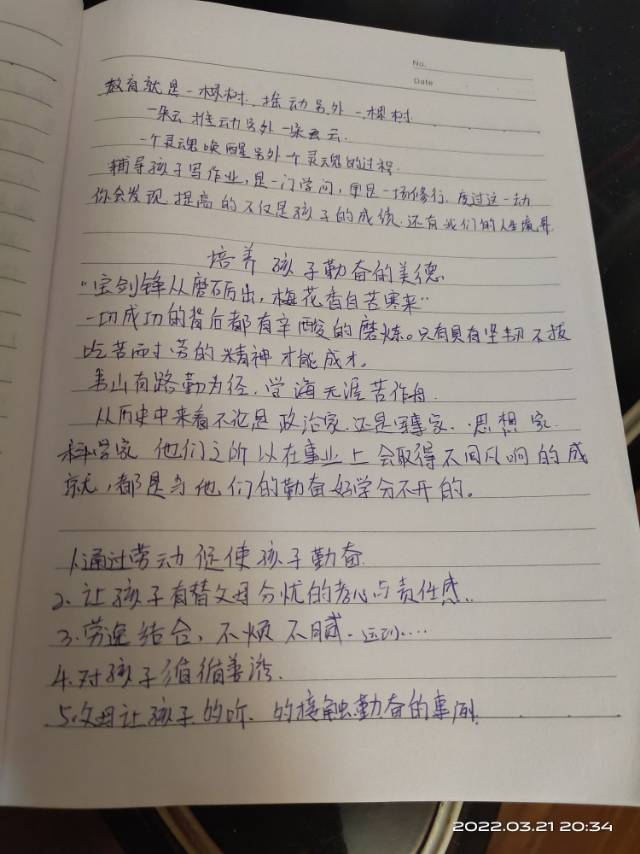 No.
Date
教育就是一棵树 摇动另外一棵树
一朵云 推动另外一朵云
一个灵魂唤醒另外一个灵魂的过程
辅导孩子写作业,是一门学问,更是一场修行.度过这一劫
你会发现 提高的不仅是孩子的成绩.还有我们的人生境界
培养孩子勤奋的美德.
"宝剑锋从磨砺出,梅花香自苦寒来"
一切成功的背后都有辛酸的磨炼。只有具有坚韧不拔
吃苦耐劳的精神才能成才。
书山有路勤为径.学海无涯苦作舟.
从历史中来看不论是政治家.还是军事家.思想家.
科学家 他们之所以在事业上会取得不同凡响的成
就,都是与他们的勤奋好学分不开的。
1.通过劳动促使孩子勤奋
2.让孩子有替父母分忧的孝心与责任感.
3.劳逸结合,不烦不腻.运动....
4.对孩子循循善诱.
5.父母让孩子的听、的接触勤奋的事例.
2022.03.21 20:34